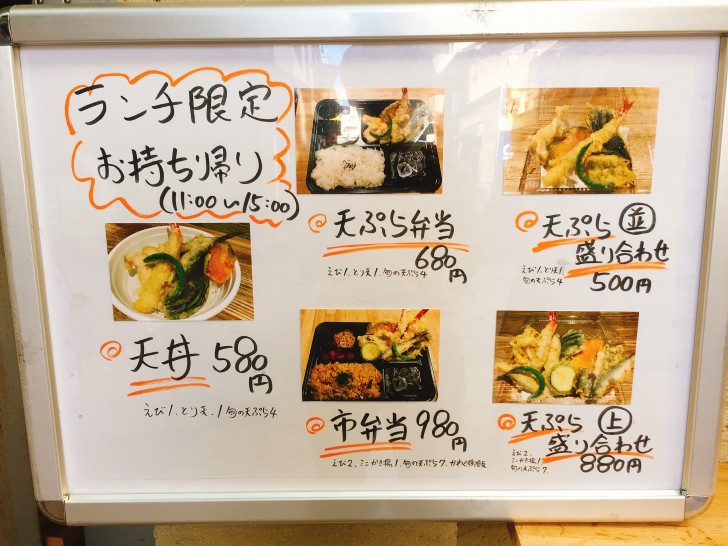 ランチ限定
お持ち帰り
(11:00〜15:00)
◎天丼 580円
えび1.とり天.1旬の天ぷら4
◎天ぷら弁当
680円
えび1.とり天1.旬の天ぷら4
◎天ぷら 並
盛り合わせ
えび1.とり天1.
旬の天ぷら4
500円
◎市弁当 980円
えび2.ミニかき揚1.旬の天ぷら7.
◎天ぷら 上
盛り合わせ
えび2.
ミニかき揚.1
旬の天ぷら7.
880円